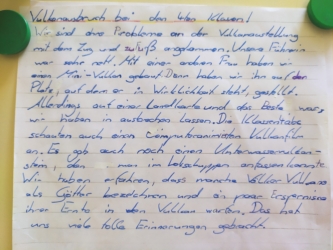 Vulkanausbruch bei den 4ten Klassen!
Wir sind ohne Probleme an der Vulkanaustellung
mit dem Zug und zu Fuß angekommen. Unsere Führerin
war sehr nett. Mit einer anderen Frau haben wir
einen Mini-Vulkan gebaut. Dann haben wir ihn auf den
Platz, auf dem er in Wirklichkeit steht, gestellt.
Allerdings auf einer Landkarte und das beste war,
wir haben in ausbrechen lassen. Die Klassen
schauten auch einen computeranimierten Vulkanfilm
an. Es gab auch noch einen Unterwasservulkan-
stein, den man im anfassen konnte.
Wir haben erfahren, dass manche Völker Vulkane
als Götter bezeichnen und ein paar Ersparnisse
ihrer Ernte in den Vulkan warfen. Das hat
uns viele tolle Erinnerungen gebracht.